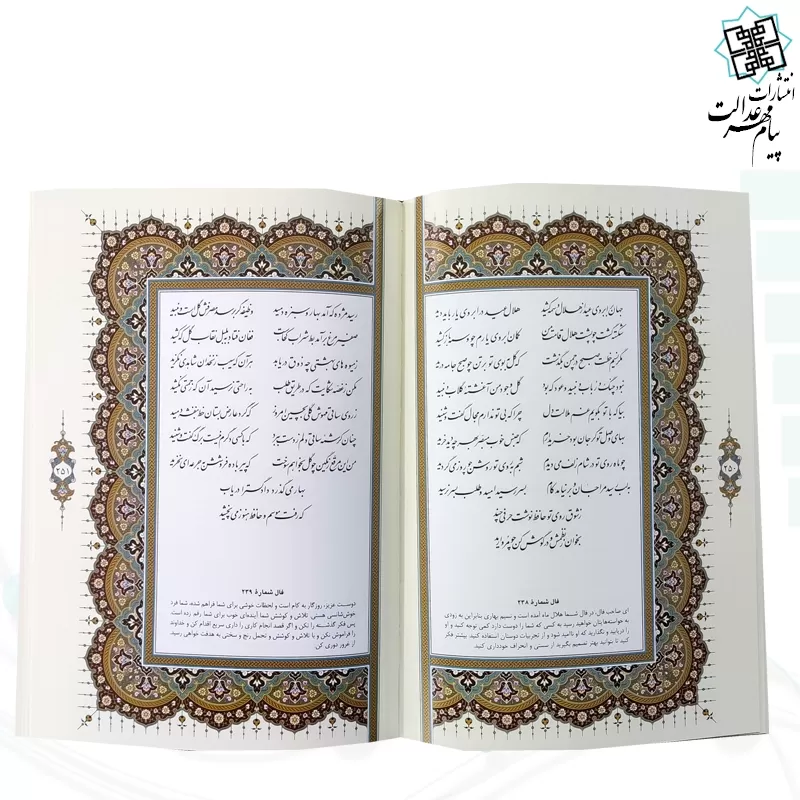 انتشارات
پیام مهر عدالت
جهان بر ابروی عید از هلال وسمه کشید هلال عید در ابروی یار باید دید
شکسته گشت چو پشت هلال قامت من کمان ابروی یارم چو وسمه باز کشید
مگر نسیم خطت صبح در چمن بگذشت که گل به بوی تو بر تن چو صبح جامه درید
نبود چنگ و رباب و نبید و عود که بود گل وجود من آغشته گلاب و نبید
بیا که با تو بگویم غم ملالت دل چرا که بی تو ندارم مجال گفت و شنید
بهای وصل تو گر جان بود خریدارم که جنس خوب مبصر به هر چه دید خرید
چو ماه روی تو در شام زلف می دیدم شبم به روی تو روشن چو روز می گردید
به لب رسید مرا جان و برنیامد کام به سر رسید امید و طلب به سر نرسید
ز شوق روی تو حافظ نوشت حرفی چند
بخوان ز نظمش و در گوش کن چو مروارید
فال شمارهٔ ۲۳۸
ای صاحب فال، در فال شما هلال ماه آمده است و نسیم بهاری بنابراین به زودی
به خواسته‌هایتان خواهید رسید به کسی که شما را دوست دارد کمی توجه کنید و او
را دریابید و نگذارید که او ناامید شود و از تجربیات دوستان استفاده کنید. بیشتر فکر
کنید تا بتوانید بهتر تصمیم بگیرید از سستی و انحراف خودداری کنید.
۲۵۰
رسید مژده که آمد بهار و سبزه دمید وظیفه گر برسد مصرفش گل است و نبید
صفیر مرغ برآمد بط شراب کجاست فغان فتاد به بلبل نقاب گل که کشید
ز میوه های بهشتی چه ذوق دریابد هر آن که سیب زنخدان شاهدی نگزید
مکن ز غصه شکایت که در طریق طلب به راحتی نرسید آن که زحمتی نکشید
ز روی ساقی مهوش گلی بچین امروز که گرد عارض بستان خط بنفشه دمید
چنان کرشمه ساقی دلم ز دست ببرد که با کسی دگرم نیست برگ گفت و شنید
من این مرقع رنگین چو گل بخواهم سوخت که پیر باده فروشش به جرعه ای نخرید
بهار می گذرد دادگسترا دریاب
که رفت موسم و حافظ هنوز می نچشید
فال شمارهٔ ۲۳۹
دوست عزیز، روزگار به کام است و لحظات خوشی برای شما فراهم شده، شما فرد
خوش‌شانسی هستی. تلاش و کوشش شما آینده‌ای خوب برای شما رقم زده است.
پس فکر گذشته را نکن و اگر قصد انجام کاری را داری سریع اقدام کن و خداوند
را فراموش نکن و با تلاش و کوشش و تحمل رنج و سختی به هدفت خواهی رسید.
از غرور دوری کن.
۲۵۱